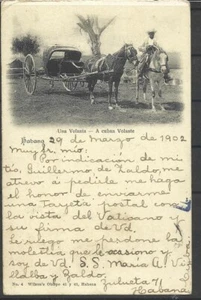 Una Volanta — A cuban Volante
Habana 29 de Marzo de 1902
Muy Sr. mío:
Por indicación de mi
tío, Guillermo de Zaldo, me
atrevo á pedirle me haga
el honor de enviarme
una tarjeta postal con
la vista del Vaticano y
su firma de Vd.
Le ruego me perdone la
molestia que le ocasiono y
soy de Vd. S. S. María L.
llalba y Zaldo.
Zulueta 71
Habana
No. 4 Wilson's Obispo 41 y 43, Habana